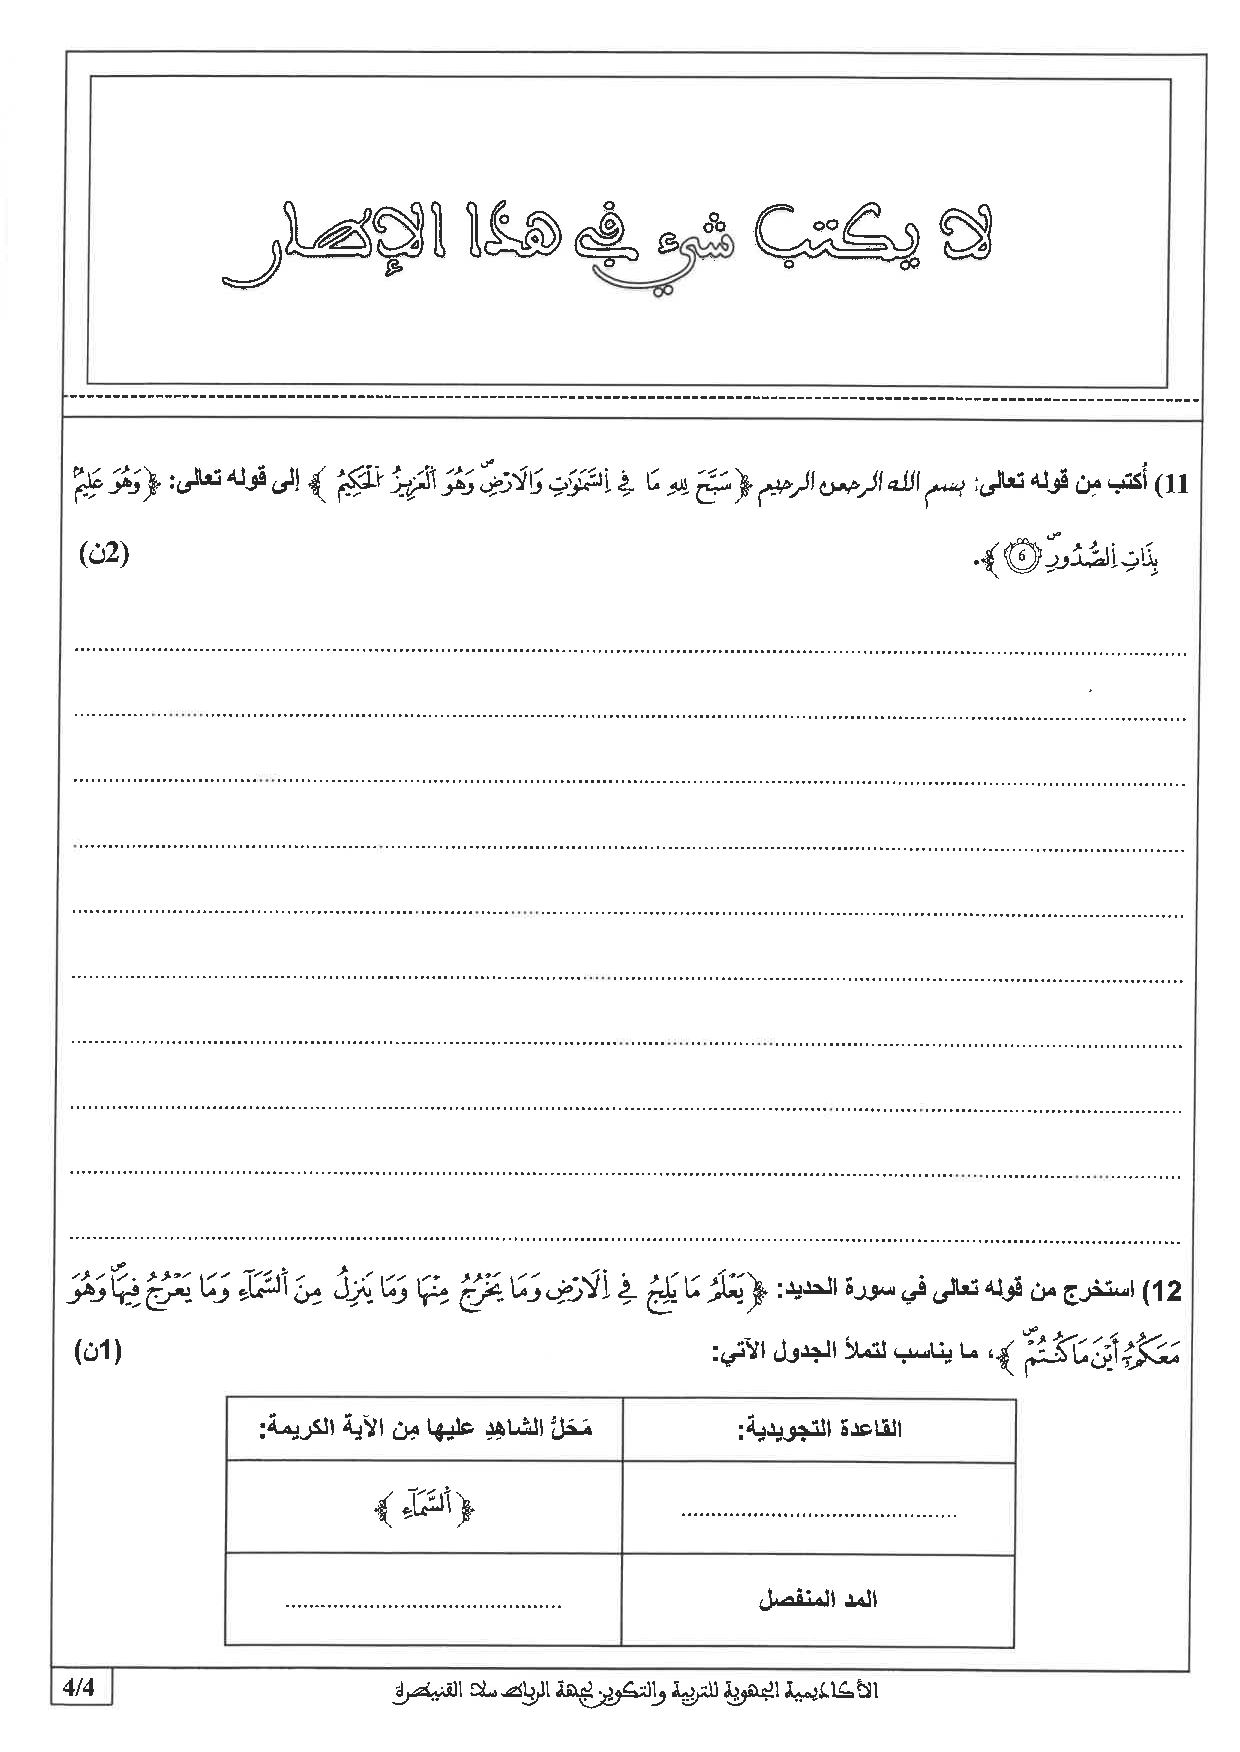 لا يكتب شيء في هذا الإطار
11) أكتب مِن قوله تعالى: بسم الله الرحمن الرحيم ﴿ سَبَّحَ لِلهِ مَا فِي اِ۬لسَّمَٰوَٰتِ وَالَارْضِۖ وَهُوَ اَ۬لْعَزِيزُ اُ۬لْحَكِيمُ ﴾ إلى قوله تعالى: ﴿ وَهُوَ عَلِيمُۢ
بِذَاتِ اِ۬لصُّدُورِۖ 6 ﴾. (2ن)
12) استخرج من قوله تعالى في سورة الحديد: ﴿ يَعْلَمُ مَا يَلِجُ فِي اِ۬لَارْضِ وَمَا يَخْرُجُ مِنْهَا وَمَا يَنزِلُ مِنَ اَ۬لسَّمَآءِ وَمَا يَعْرُجُ فِيهَاۖ وَهُوَ
مَعَكُمُۥٓ أَيْنَ مَا كُنتُمْۖ ﴾، ما يناسب لتملأ الجدول الآتي: (1ن)
القاعدة التجويدية: مَحَلُّ الشاهِدِ عليها مِن الآية الكريمة:
﴿ اَ۬لسَّمَآءِ ﴾
المد المنفصل
الأكاديمية الجهوية للتربية والتكوين لجهة الرباط سلا القنيطرة 4/4